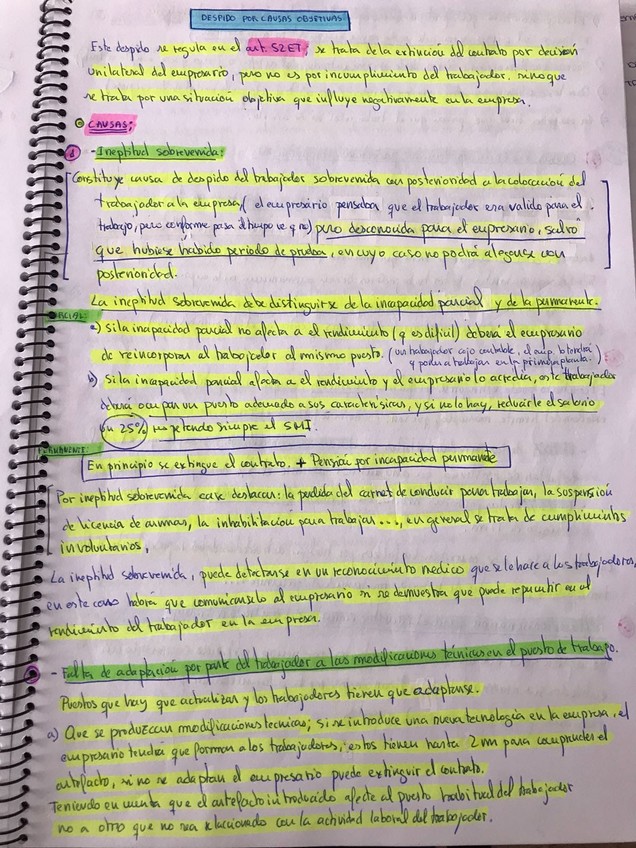 DESPIDO POR CAUSAS OBJETIVAS
Este despido se regula en el art. 52 ET, se trata de la extinción del contrato por decisión
unilateral del empresario, pero no es por incumplimiento del trabajador, sino que
se trata por una situación objetiva que influye negativamente en la empresa.
CAUSAS:
- Ineptitud sobrevenida:
Constituye causa de despido del trabajador sobrevenida con posterioridad a la colocación del
trabajador a la empresa, (el empresario pensaba que el trabajador era valido para el
trabajo, pero conforme pasa el tiempo ve q no) pero desconocida para el empresario, salvo
que hubiese habido periodo de prueba, en cuyo caso no podrá alegarse con
posterioridad.
La ineptitud sobrevenida debe distinguirse de la incapacidad parcial y de la permanente.
PARCIAL:
a) Si la incapacidad parcial no afecta a el rendimiento (q es dificil) deberá el empresario
de reincorporar al trabajador al mismo puesto. (un trabajador cojo contable, el emp. lo tendrá
y podrá a trabajar en la primera planta.)
b) Si la incapacidad parcial afecta a el rendimiento y el empresario lo acredia, este trabajador
deberá ocupar un puesto adecuado a sus caracterísicas, y si no lo hay, reducirle el salario
un 25% respetando siempre el SMI.
PERMANENTE:
En principio se extingue el contrato. + Pensión por incapacidad permanente
Por ineptitud sobrevenida cabe destacar: la perdida del carnet de conducir para trabajar, la suspensión
de licencia de armas, la inhabilitación para trabajar..., en general se trata de cumplimientos
involuntarios,
La ineptitud sobrevenida, puede detectarse en un reconocimiento medico que se le hace a los trabajadores,
en este caso habrá que comunicarselo al empresario si se demuestra que puede repercutir en el
rendimiento del trabajador en la empresa.
- Falta de adaptación por parte del trabajador a las modificaciones técnicas en el puesto de trabajo.
Puestos que hay que actualizar y los trabajadores tienen que adaptarse.
a) Que se produzcan modificaciones tecnicas; si se introduce una nueva tecnología en la empresa, el
empresario tendrá que formar a los trabajadores, estos tienen hasta 2m para comprender el
artefacto, si no se adaptan el empresario puede extinguir el contrato.
Teniendo en cuenta que el artefacto introducido afecte al puesto habitual del trabajador
no a otro que no sea relacionado con la actividad laboral del trabajador.